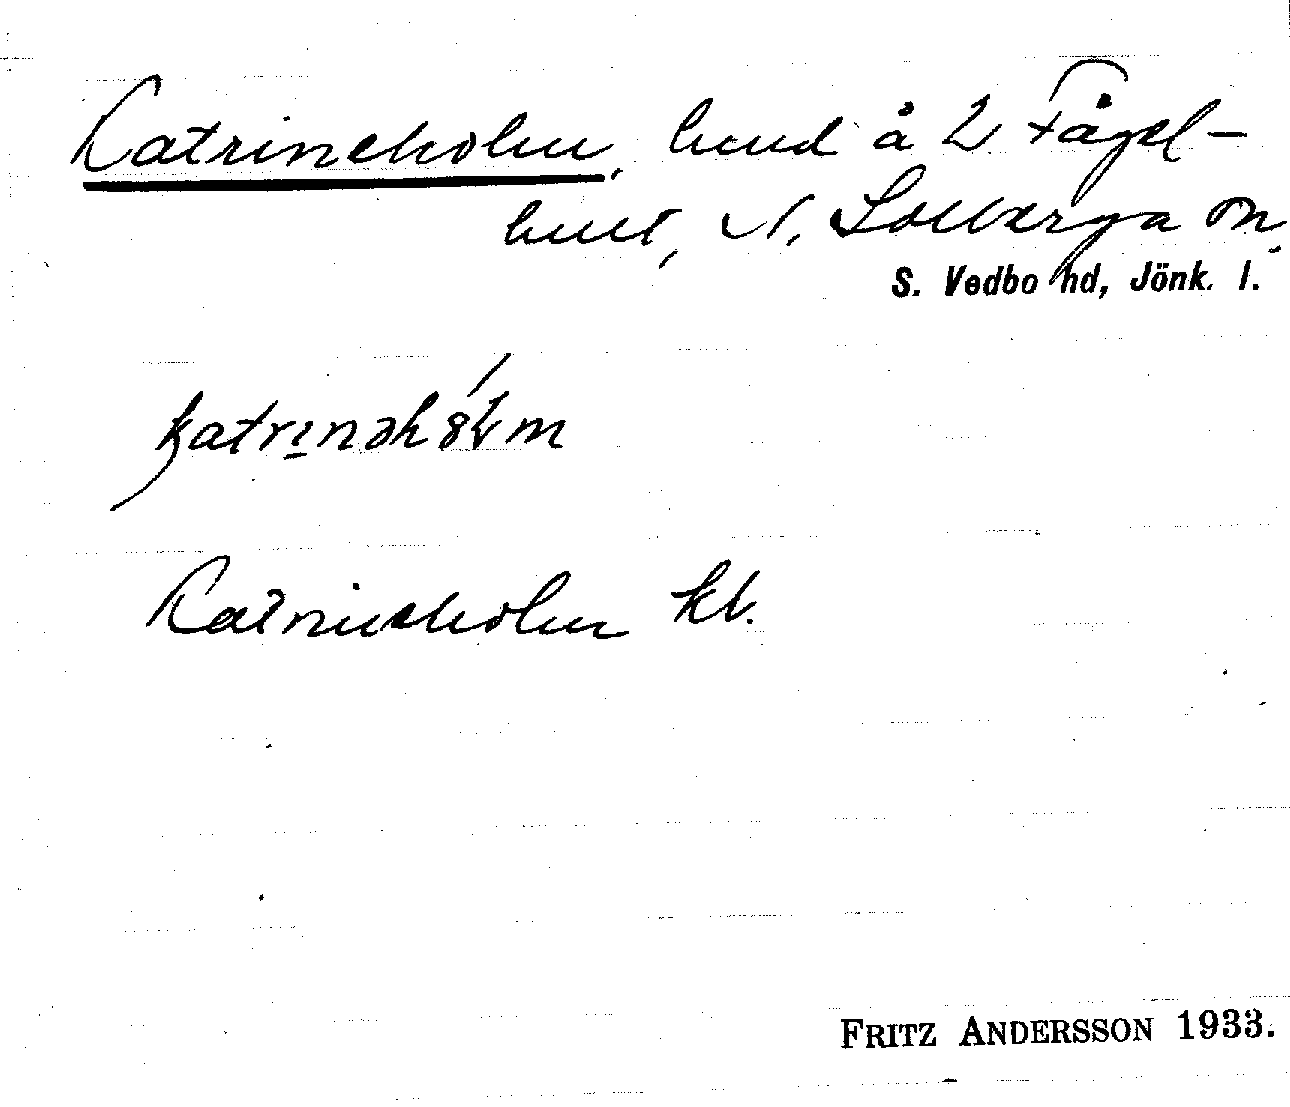 Katrineholm, lund å L. Fågel-
hult, N. Solberga sn,
S. Vedbo hd, Jönk. l.
katrinəhólm
Katrineholm kl.
FRITZ ANDERSSON 1933.